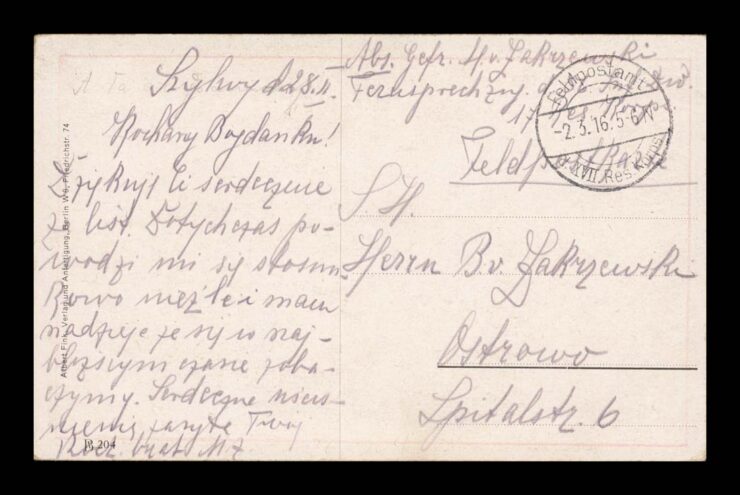 Szylwy d 28.II.
Kochany Bogdanku!
Dziękuję Ci serdecznie
za list. Dotychczas po-
wodzi mi się stosun-
kowo nieźle i mam
nadzieję że się w naj-
bliższym czasie zoba-
czymy. Serdeczne
Twój
brat
Albert Fink, Verlag und Anfertigung, Berlin W8, Friedrichstr. 74
204
Abs. Gefr. v. Zakrzewski
Fernsprechzug
17 Res
Feldpost
Feldpostamt
-2.3.16. 5-6 N
XVII. Res. Korps
S. H.
Herrn B v. Zakrzewski
Ostrowo
Spitalstr. 6